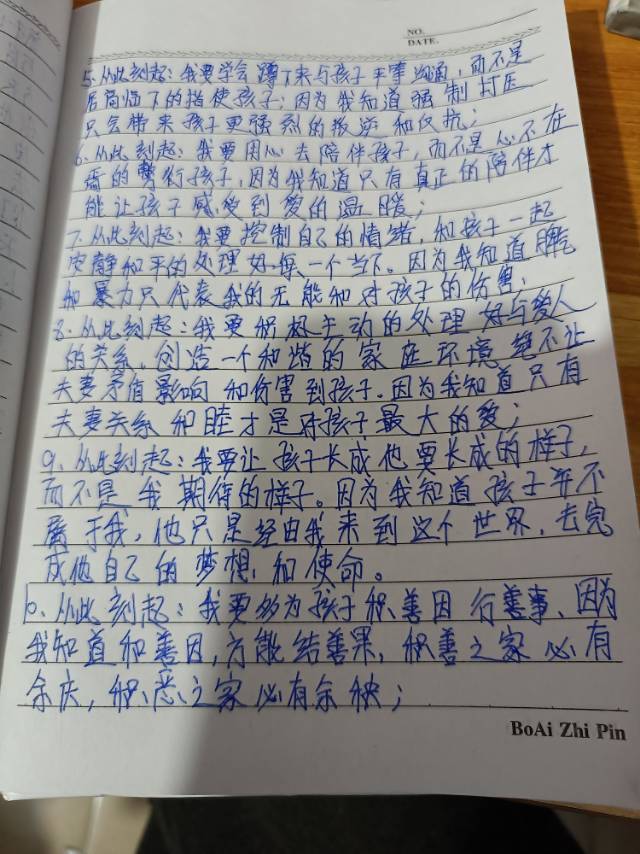 NO.
DATE.
5、从此刻起：我要学会蹲下来与孩子平等沟通，而不是
居高临下的指使孩子；因为我知道强制打压
只会带来孩子更强烈的叛逆和反抗；
6、从此刻起：我要用心去陪伴孩子，而不是心不在
焉的敷衍孩子，因为我知道只有真正的陪伴才
能让孩子感受到爱的温暖；
7、从此刻起：我要控制自己的情绪，和孩子一起
安静和平的处理好每一个当下。因为我知道脾气
和暴力只代表我的无能和对孩子的伤害；
8、从此刻起：我要积极主动的处理好与爱人
的关系，创造一个和谐的家庭环境绝不让
夫妻矛盾影响和伤害到孩子。因为我知道只有
夫妻关系和睦才是对孩子最大的爱；
9、从此刻起：我要让孩子长成他要长成的样子，
而不是我期待的样子。因为我知道孩子并不
属于我，他只是经由我来到这个世界，去完
成他自己的梦想和使命。
10、从此刻起：我要多为孩子积善因行善事、因为
我知道和善因，方能结善果，积善之家必有
余庆，积恶之家必有余秧；
BoAi Zhi Pin